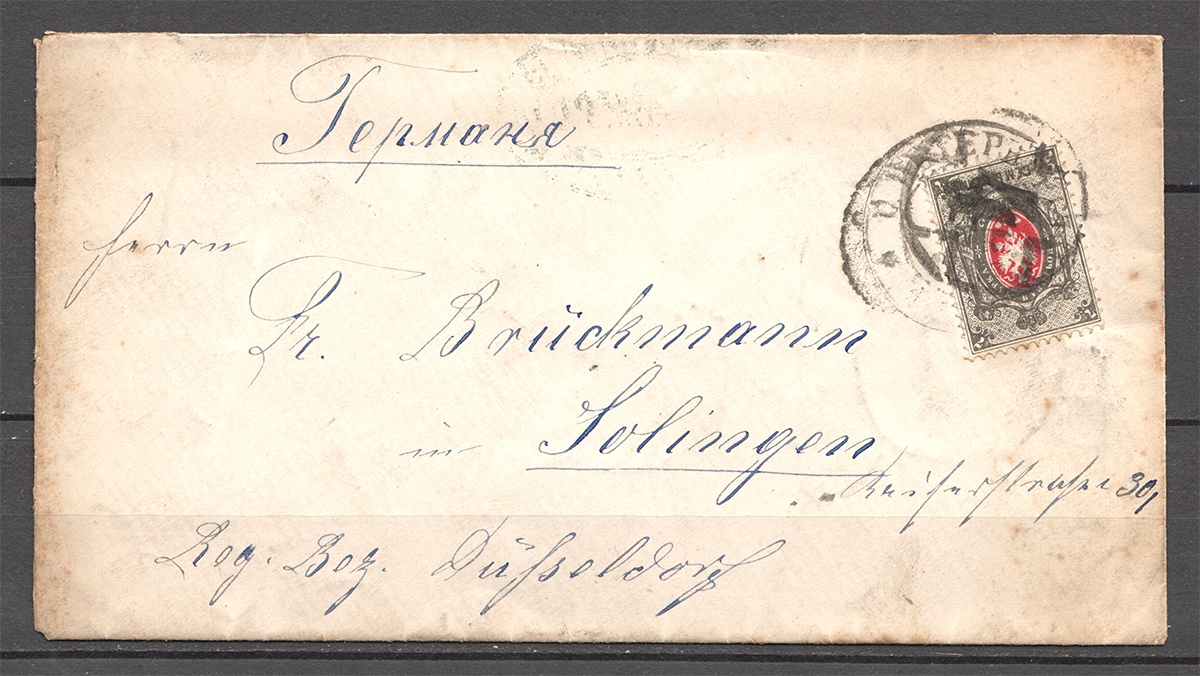 Германя
Herrn
Fr. Brückmann
in Solingen
Kaiserstrasse 30,
Reg. Bez. Düsseldorf